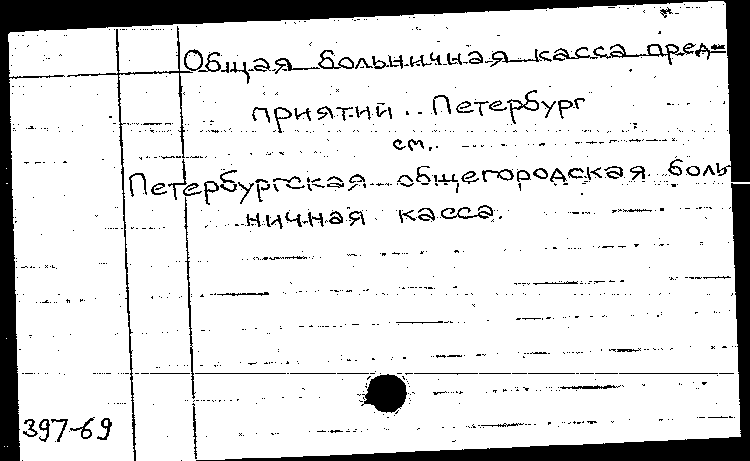 Общая больничная касса пред-
приятий.. Петербург
см.
Петербургская общегородская боль
ничная касса.
397-69